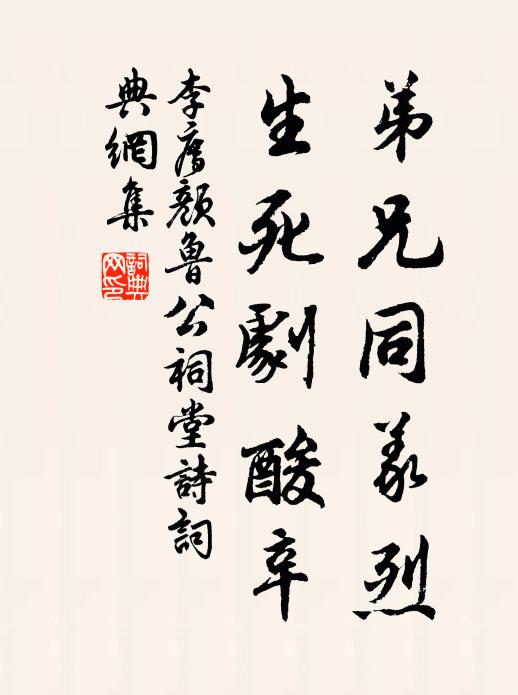 弟兄同義烈
生死劇酸辛
李廌顏魯公祠堂詩詞
典網集
詞典网印